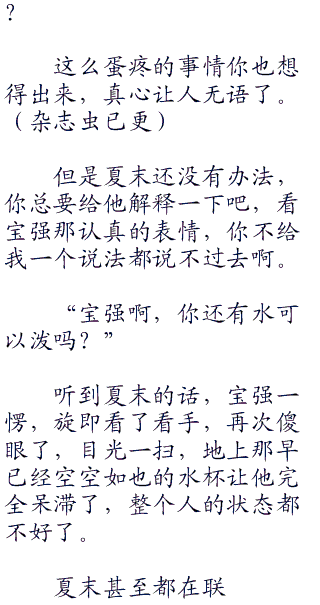 ？
这么蛋疼的事情你也想
得出来，真心让人无语了。
（杂志虫已更）
但是夏末还没有办法，
你总要给他解释一下吧，看
宝强那认真的表情，你不给
我一个说法都说不过去啊。
“宝强啊，你还有水可
以泼吗？”
听到夏末的话，宝强一
愣，旋即看了看手，再次傻
眼了，目光一扫，地上那早
已经空空如也的水杯让他完
全呆滞了，整个人的状态都
不好了。
夏末甚至都在联